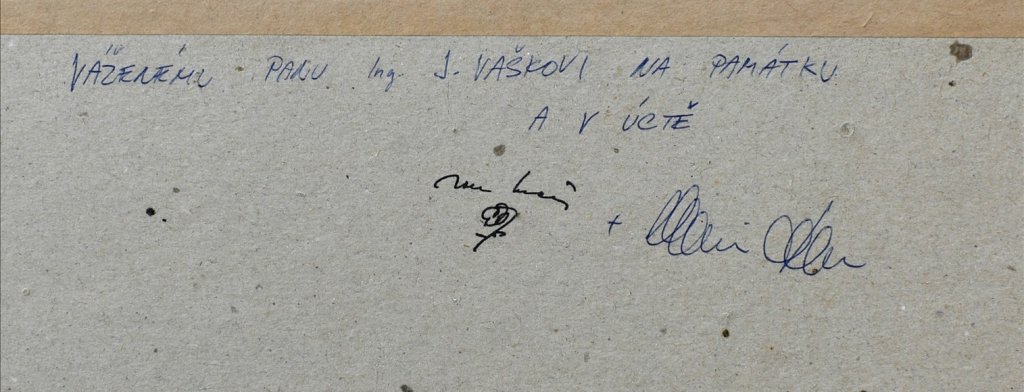 VÁŽENÉMU PANU Ing. J. VAŠKOVI NA PAMÁTKU
A V ÚCTĚ
+